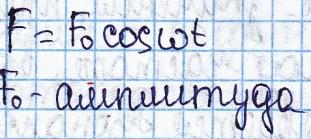 F = F₀ cos ωt
F₀ - амплитуда